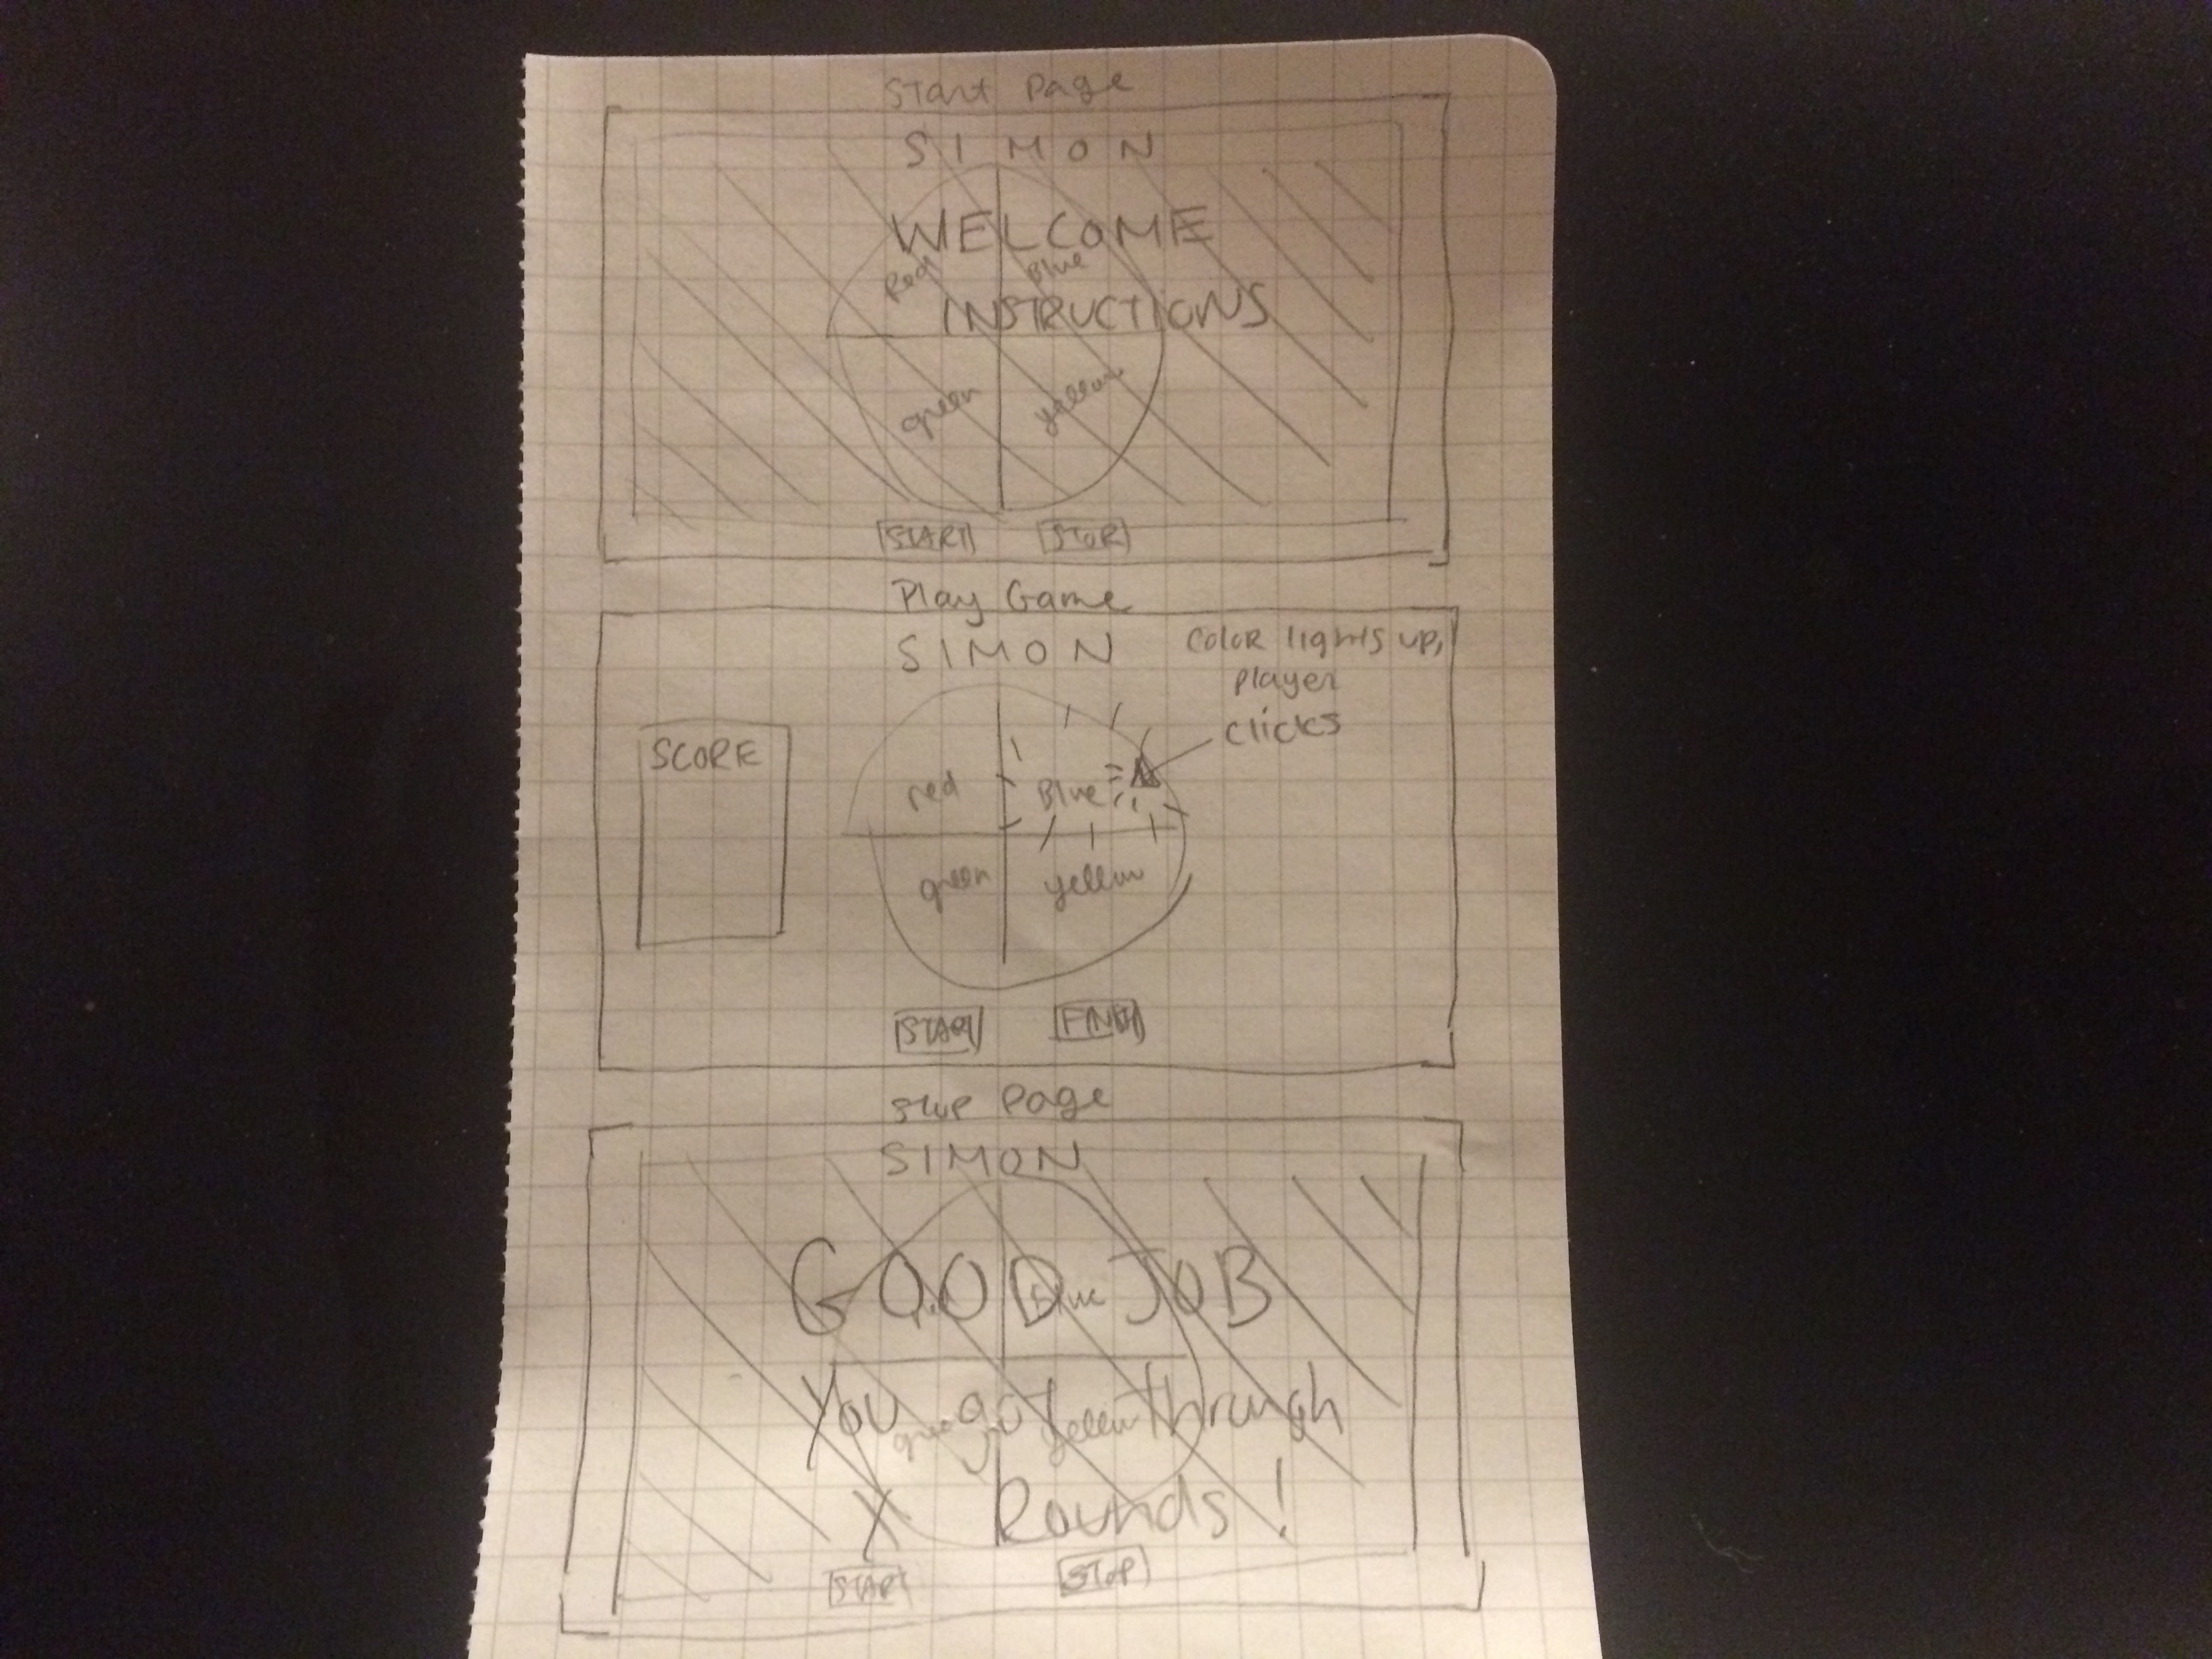 Start Page
SIMON
WELCOME
Red Blue
INSTRUCTIONS
green yellow
START STOP
Play Game
SIMON
COLOR lights up,
player
clicks
SCORE
red Blue
green yellow
START FINISH
Stop Page
SIMON
GOOD JOB
Blue
You got through
green yellow
X Rounds!
START STOP